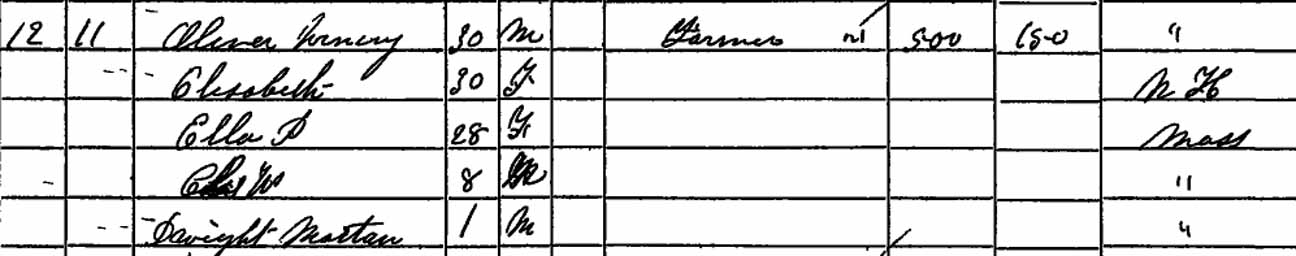 12 11 Oliver 30 M Farmer 500 150 "
Elisabeth 30 F N H
Ella P 28 F Mass
W 8 M "
Dwight Morton 1 M "